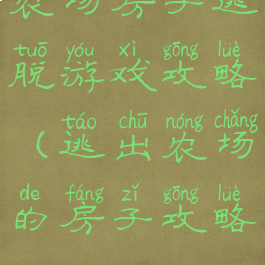 农场房子逃
tuō yóu xì gōng lüè
脱游戏攻略
táo chū nóng chǎng
（逃出农场
de fáng zǐ gōng lüè
的房子攻略